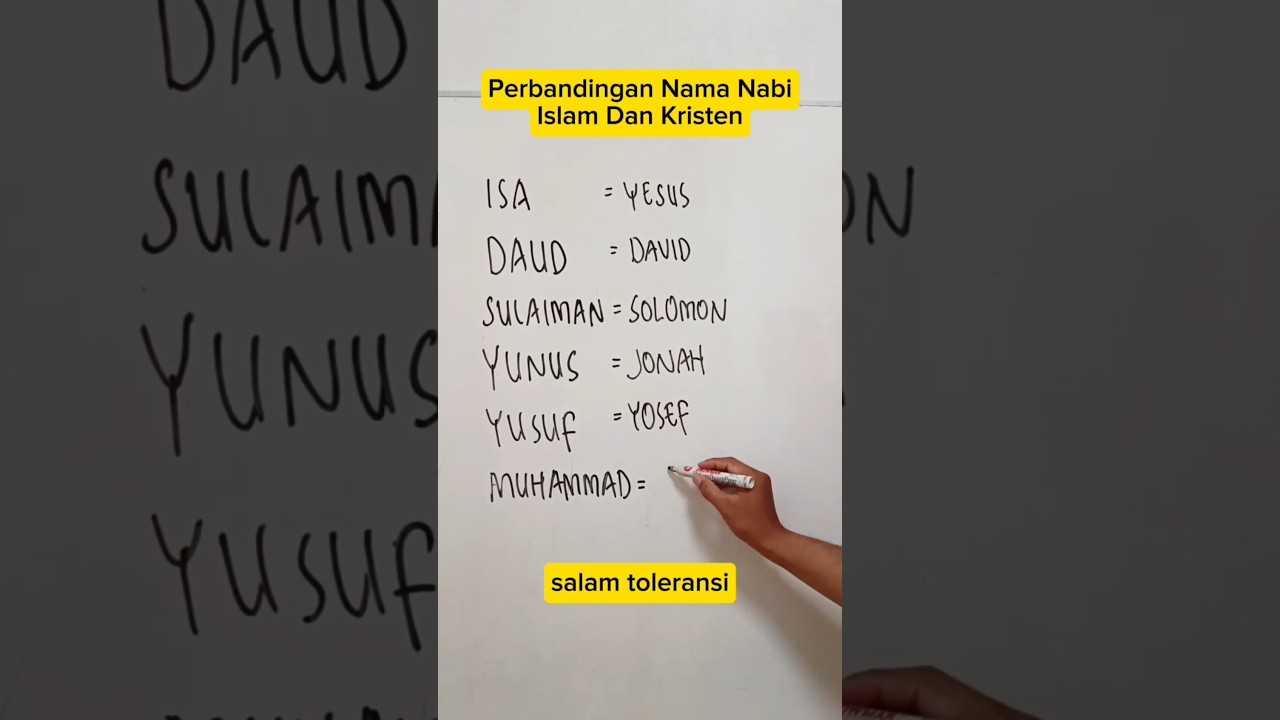 Perbandingan Nama Nabi
Islam Dan Kristen
ISA = YESUS
DAUD = DAVID
SULAIMAN = SOLOMON
YUNUS = JONAH
YUSUF = YOSEF
MUHAMMAD =
salam toleransi
DAUD
SULAIMA
ON
YUNUS
YUSUF